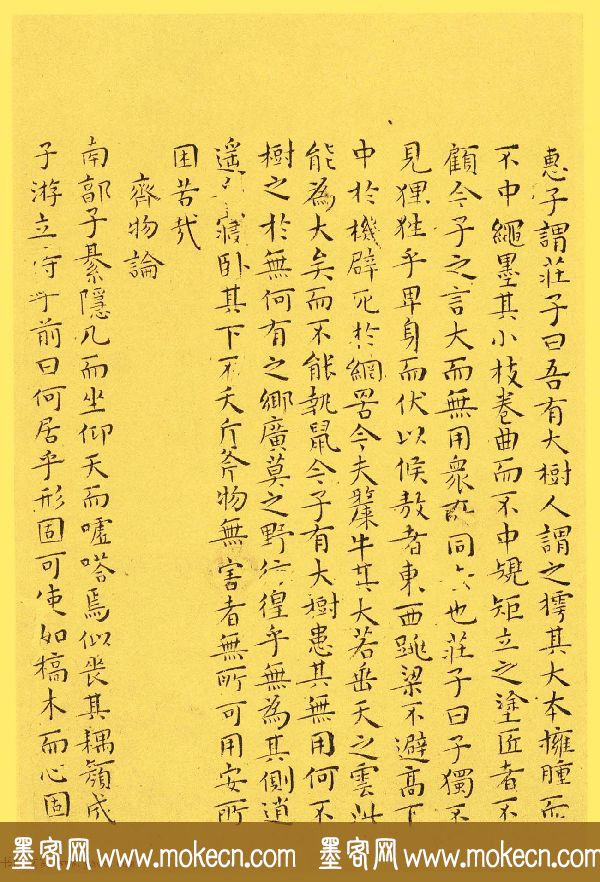 惠子謂莊子曰吾有大樹人謂之樗其大本擁腫而
不中繩墨其小枝卷曲而不中規矩立之塗匠者不
顧今子之言大而無用衆所同去也莊子曰子獨不
見狸狌乎卑身而伏以候敖者東西跳梁不避高下
中於機辟死於網罟今夫斄牛其大若垂天之雲此
能為大矣而不能執鼠今子有大樹患其無用何不
樹之於無何有之鄉廣莫之野彷徨乎無為其側逍
遥寢卧其下不夭斤斧物無害者無所可用安所
困苦哉
齊物論
南郭子綦隱几而坐仰天而噓嗒焉似喪其耦顏成
子游立侍乎前曰何居乎形固可使如槁木而心固
墨客网 www.mokecn.com 墨客网 www.mokecn.com